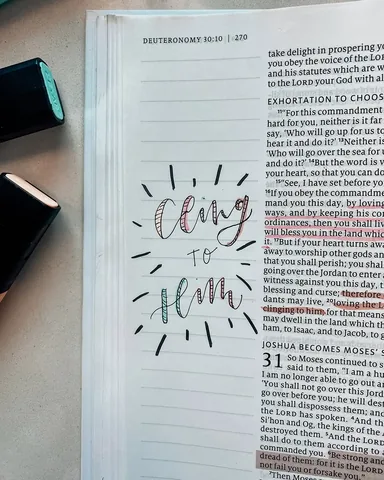 DEUTERONOMY 30:10 | 270
Cling
to
Him
take delight in prospering yo
you obey the voice of the LOR
and his statutes which are w
to the LORD your God with al
EXHORTATION TO CHOOS
11"For this commandment
hard for you, neither is it far
say, 'Who will go up for us to
hear it and do it?' 13Neither is
'Who will go over the sea for u
and do it?' 14But the word is v
your heart, so that you can do
15"See, I have set before you
16If you obey the commandme
mand you this day, by loving
ways, and by keeping his co
ordinances, then you shall liv
will bless you in the land which
it. 17But if your heart turns awa
away to worship other gods and
that you shall perish; you shal
going over the Jordan to enter
witness against you this day, t
blessing and curse; therefore
dants may live, 20loving the L
clinging to him; for that means
may dwell in the land which th
ham, to Isaac, and to Jacob, to g
JOSHUA BECOMES MOSES' S
31 So Moses continued to s
said to them, "I am a hu
I am no longer able to go out a
'You shall not go over this Jord
go over before you; he will dest
you shall dispossess them; and
the LORD has spoken. 4And th
Si'hon and Og, the kings of the A
destroyed them. 5And the LORD
shall do to them according to
commanded you. 6Be strong and
dread of them: for it is the LORD
not fail you or forsake you."
7Then Moses